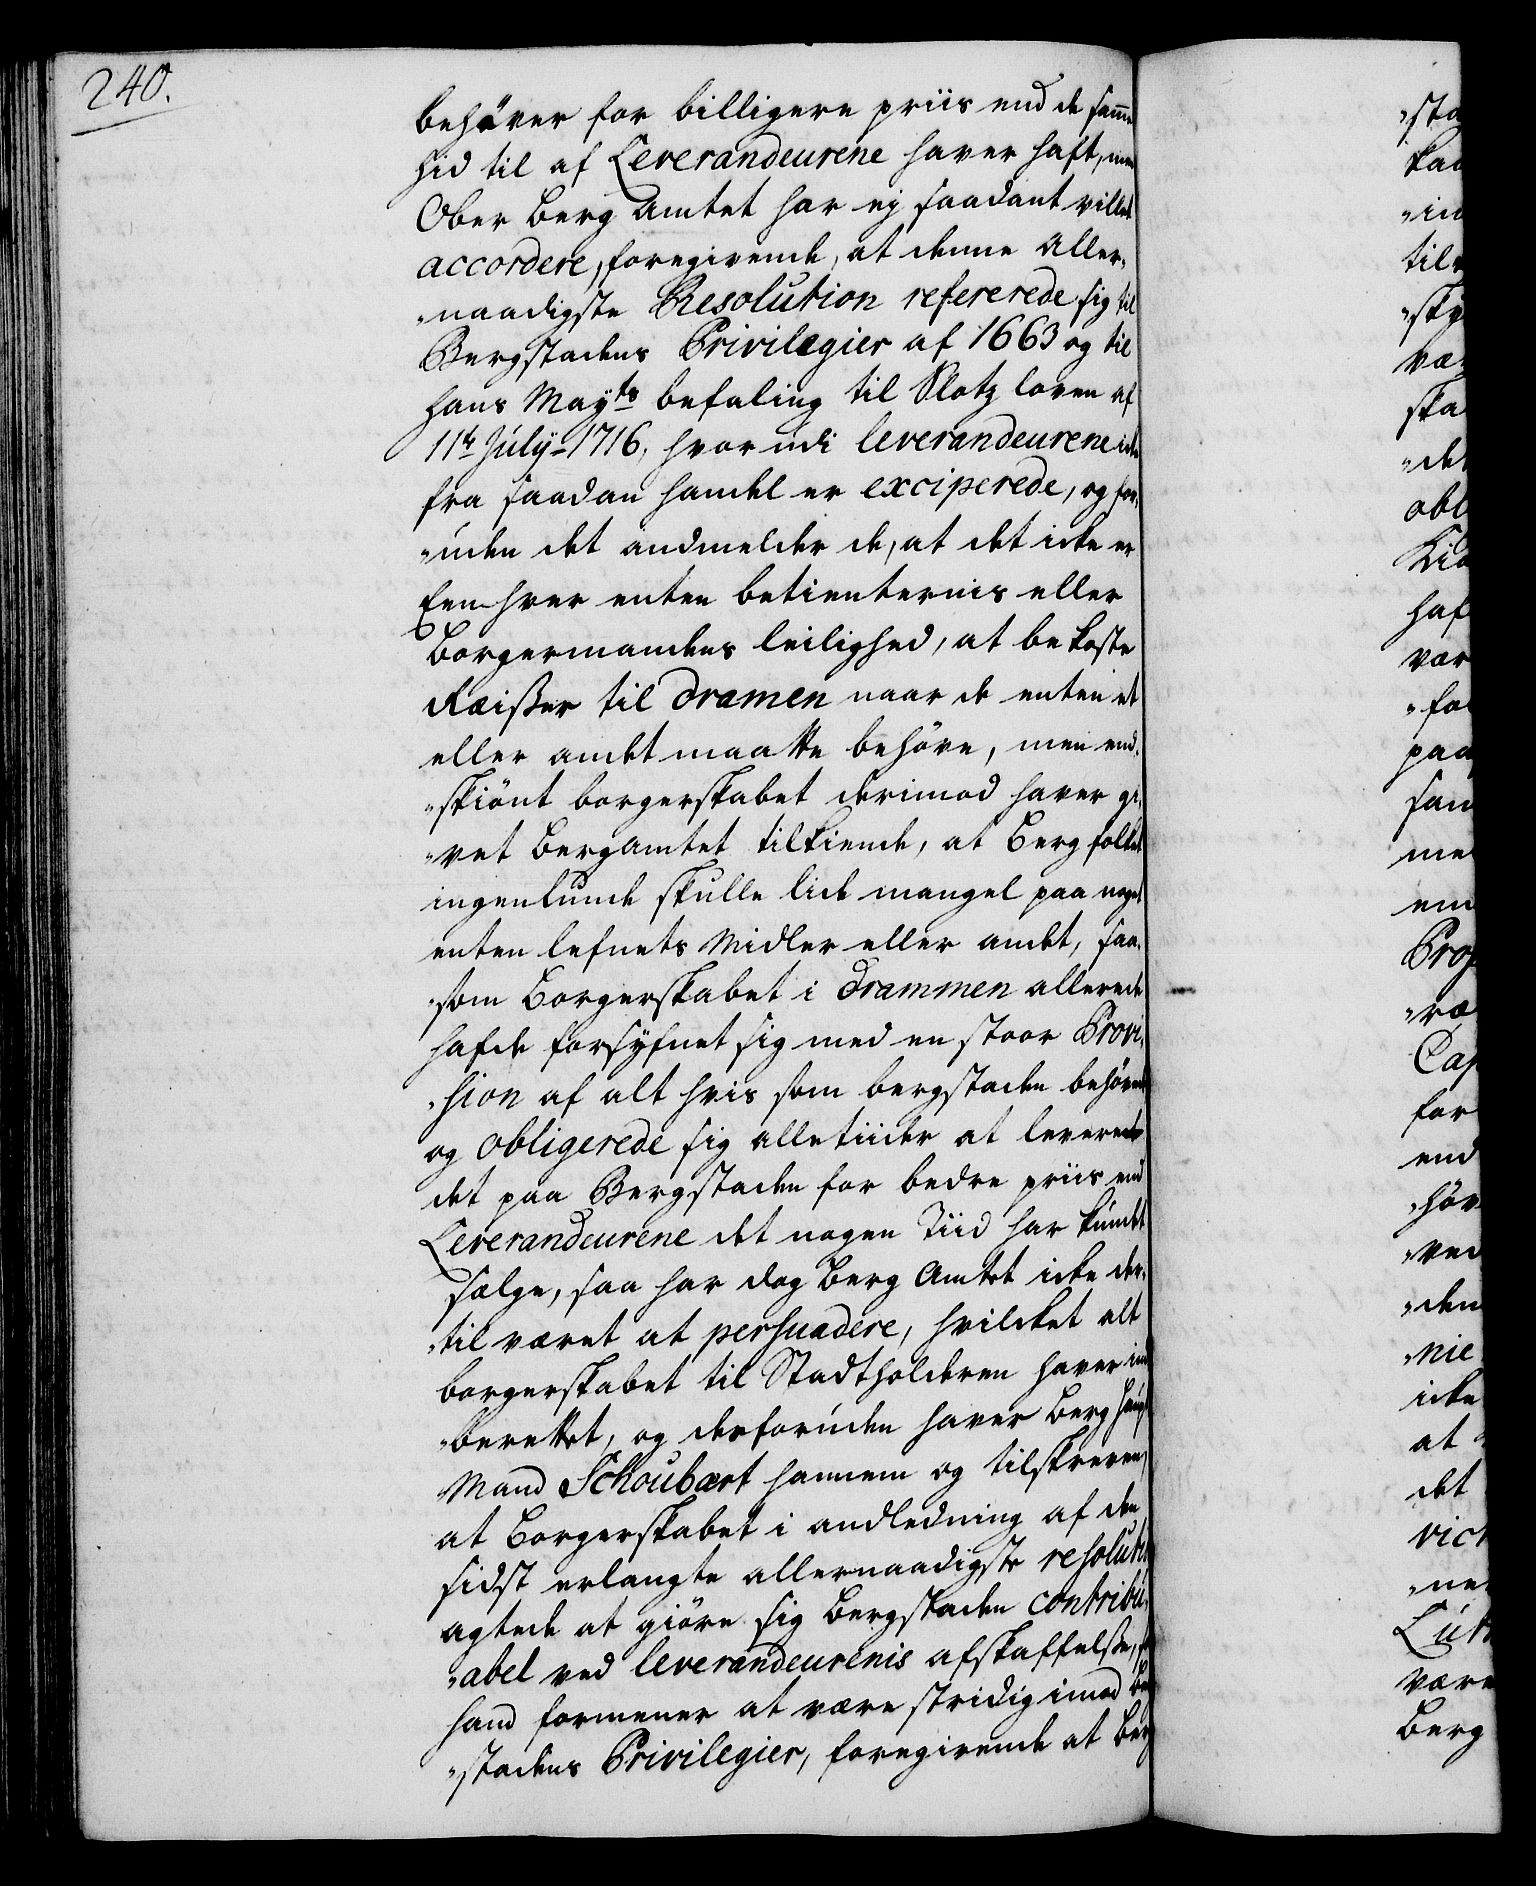 240.
behøver for billigere priis end de samme
hid til af Leverandeurene haver haft, men
Ober Berg Amtet har ej saadant villet
accordere, foregivende, at denne Aller¬
„naadigste Resolution refererede sig til
Bergstadens Privilegier af 1663 og til
hans Mayts befaling til Slotz loven af
11te July 1716, hvor udi leverandeurene icke
fra saadan handel er exciperede, og for¬
„uden det andmelder de, at det icke er
Een hver enten betienternis eller
Borgermandens leilighed, at bekoste
Reisser til Dramen naar de enten et
eller andet maatte behøve, men end¬
„skiønt borgerskabet derimod haver gi¬
„vet Bergamtet tilkiende, at Berg folket
ingenlunde skulle lide mangel paa noget
enten lefnets Midler eller andet, saa¬
„som Borgerskabet i Drammen allerede
hafde forsyfnet sig med en stoor Provi¬
„sion af alt hvis som bergstaden behøvede
og obligerede sig alletiider at leverede
det paa Bergstaden for bedre priis end
Leverandeurene det nogen Tiid har kundet
sælge, saa har dog Berg Amtet icke der¬
„til været at persuadere, hvilcket alt
borgerskabet til Stadtholderen haver ind
„berettet, og desforuden haver Berg haupt
Mand Schoubært hannem og tilskreven,
at Borgerskabet i andledning af den
sidst erlangte allernaadigste resolution
agtede at giøre sig Bergstaden contribu¬
„abel ved leverandeurenis afskaffelsse,
hand formener at være stridig imod Berg
„stadens Privilegier, foregivende at Berg
„sta
„in
til
„sky
vær
ska
„det
obl
haf
vær
„for
paa
sam
me
Prop
„ræ
Cap
for
end
„høv
„ved
„den
„nie
icke
at
det
vict
„net
være
Berg